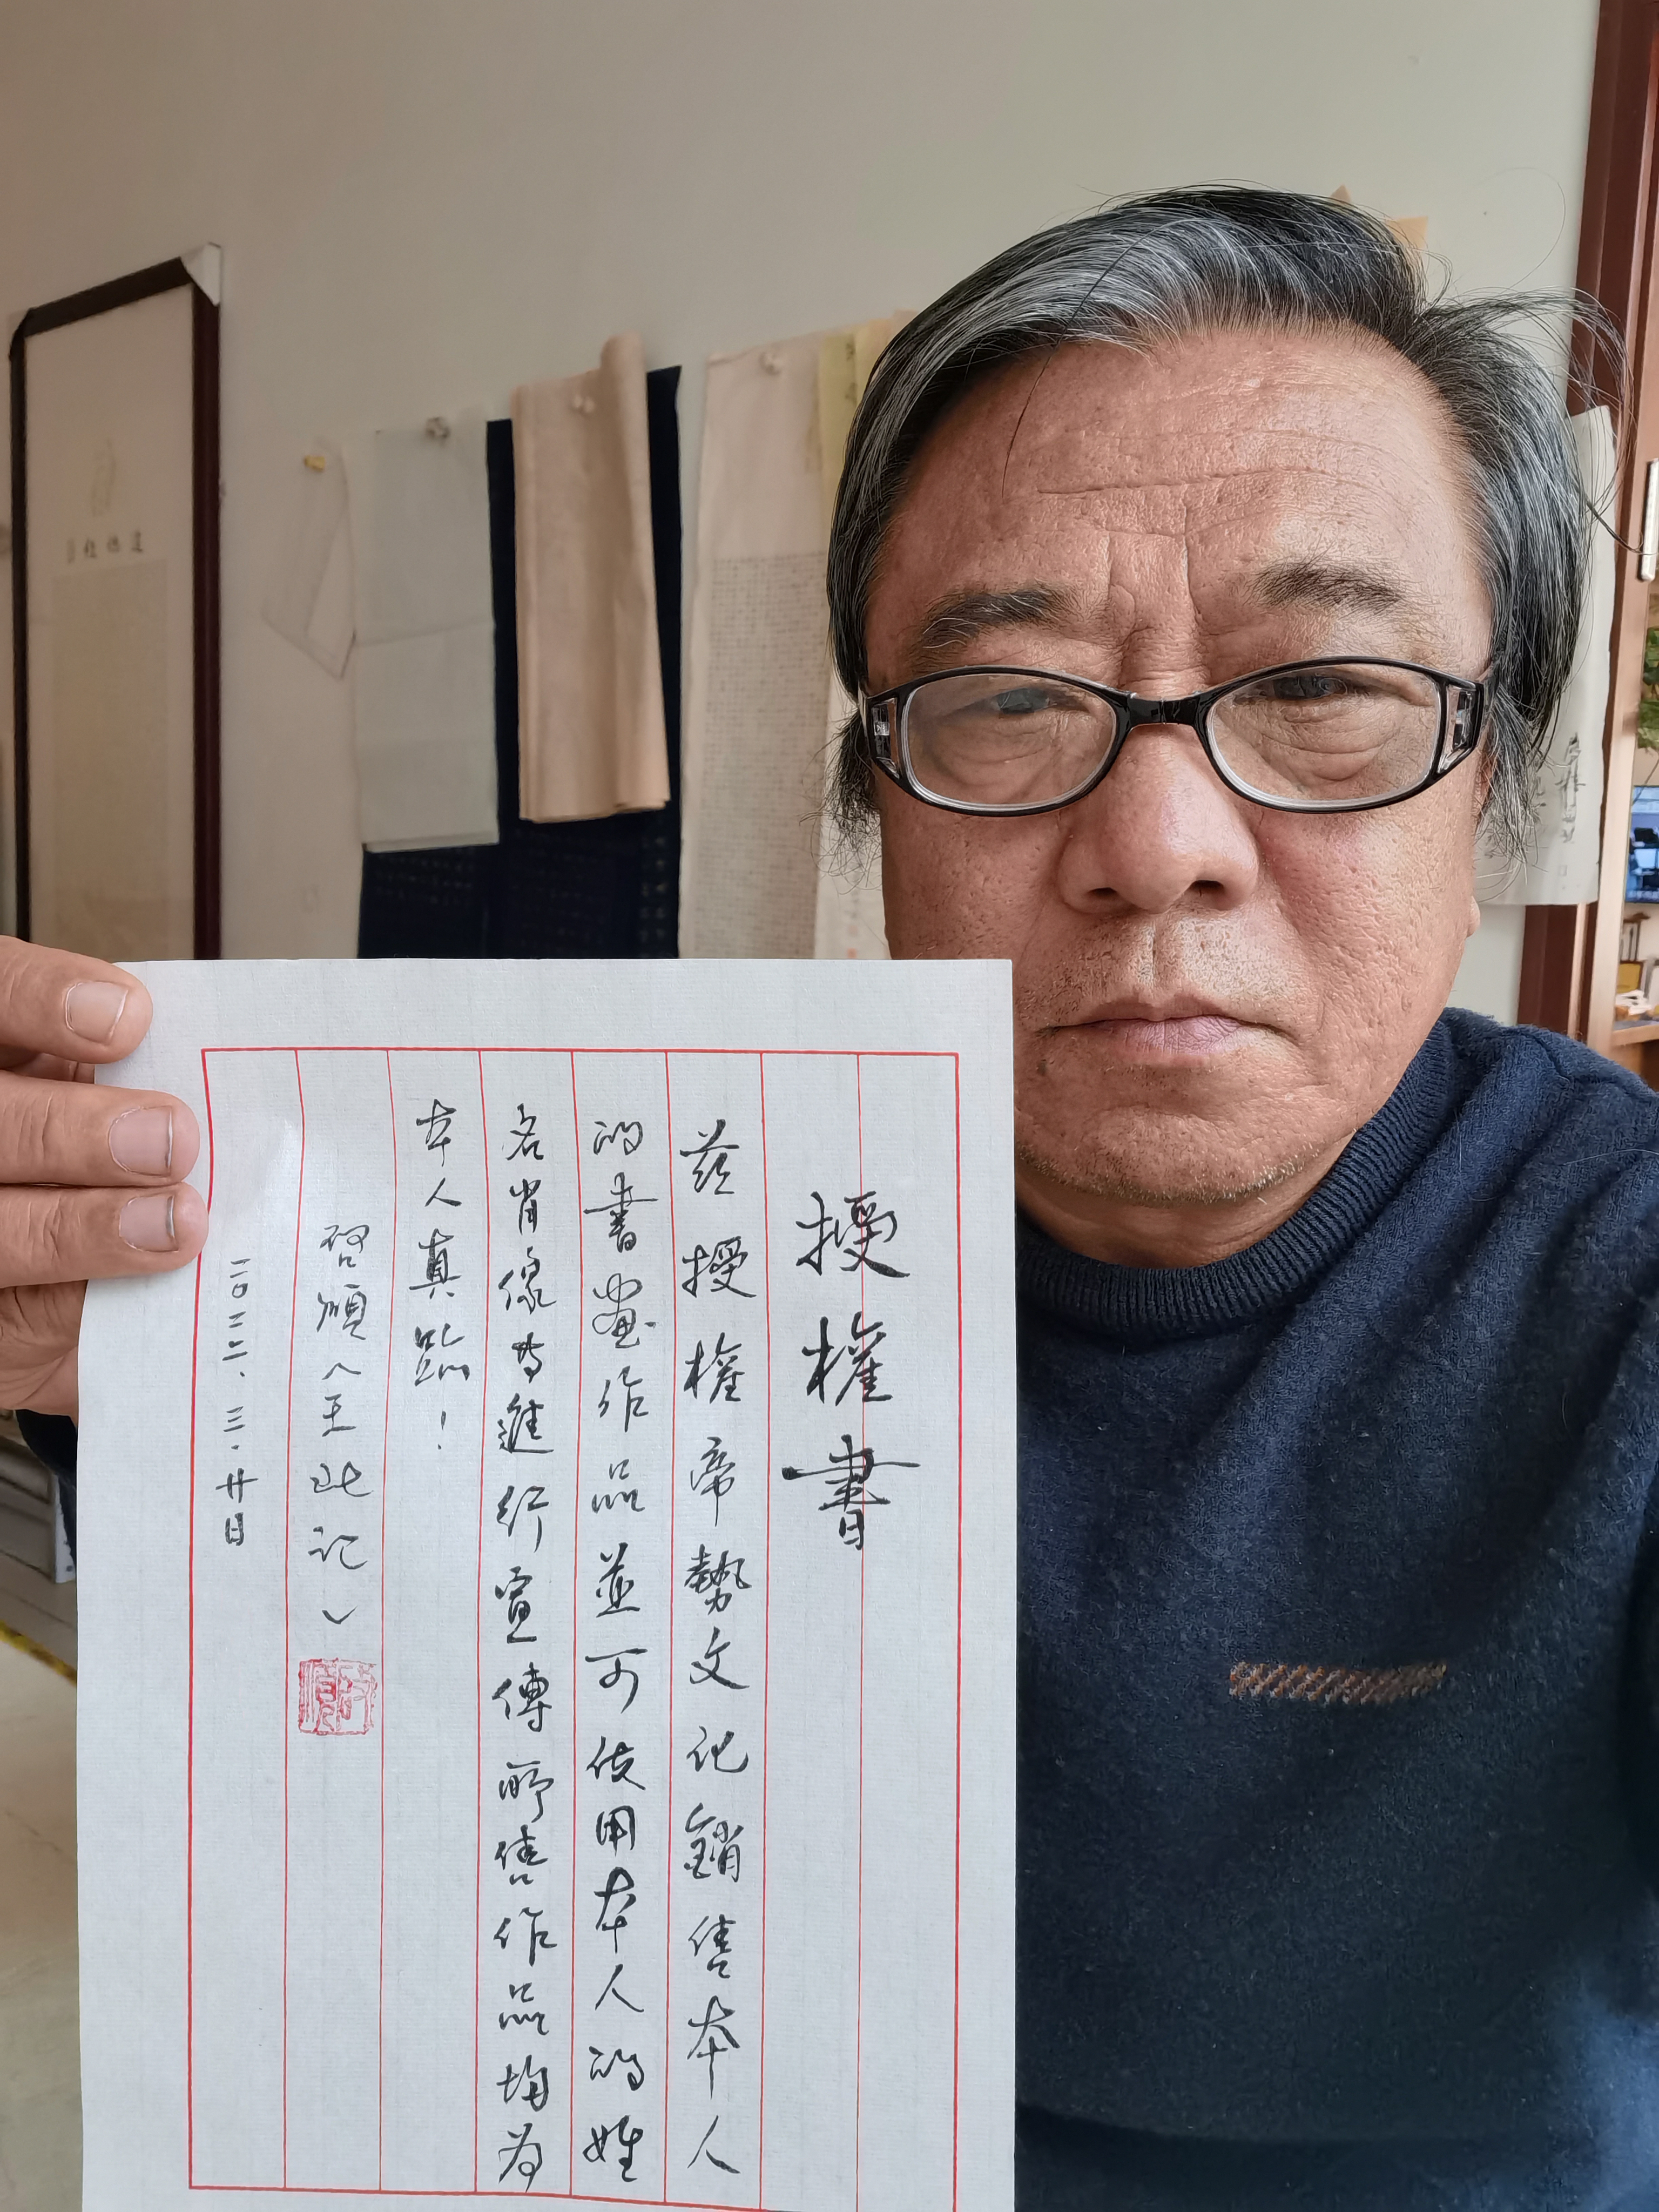 授權書
茲授權帝勢文化銷售本人
的書畫作品並可使用本人的姓
名肖像等進行宣傳所售作品均為
本人真跡！
啓順（王
記）
二〇二二.三.廿日